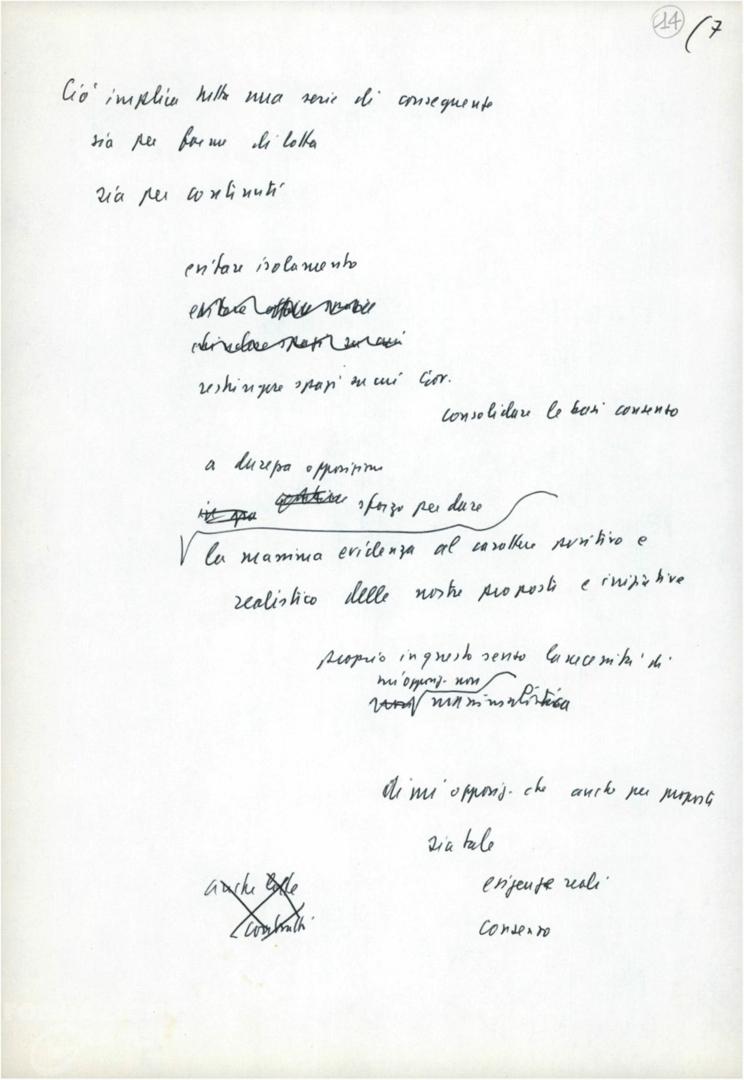 14 (7
Ciò implica tutta una serie di conseguenze
sia per forme di lotta
sia per contenuti
evitare isolamento
restringere spazi su cui Gov.
consolidare le basi consenso
a durezza opposizione
sforzo per dare
la massima evidenza al carattere positivo e
realistico delle nostre proposte e iniziative
proprio in questo senso la necessità di
un'oppoiz. non
massimalistica
di un'opposiz. che anche per proposte
sia tale
anche lotte
esigenze reali
contratti
consenso